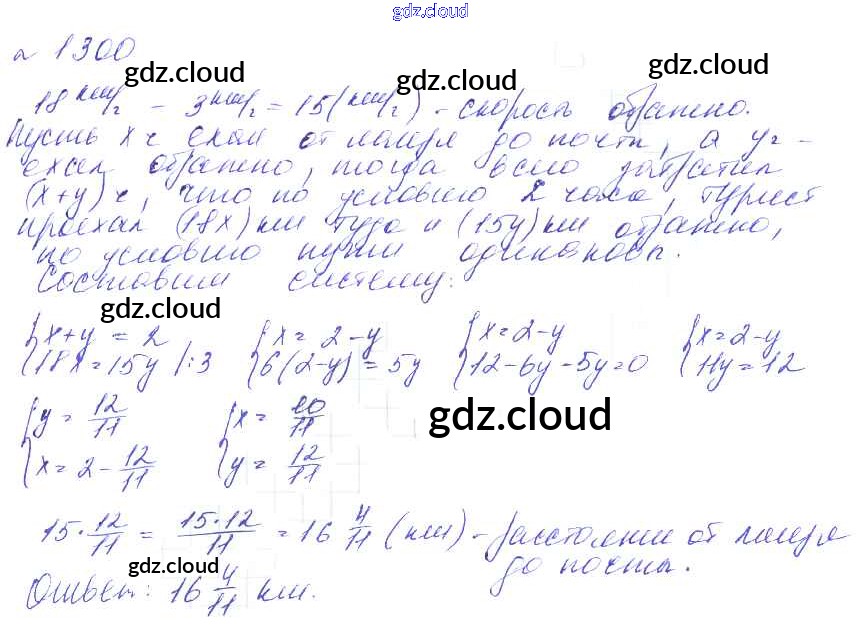 gdz.cloud
№ 1300
gdz.cloud gdz.cloud gdz.cloud
18 км/г - 3 км/г = 15 (км/г) - скорость обратно.
Пусть x ч ехал от лагеря до почты, а y ч -
ехал обратно, тогда всего затратил
(x+y) ч, что по условию 2 часа, турист
проехал (18x) км туда и (15y) км обратно,
по условию пути одинаковы.
Составим систему:
gdz.cloud
{x+y = 2 {x = 2-y {x=2-y {x=2-y
{18x=15y |:3 {6(2-y) = 5y {12-6y-5y=0 {11y=12
gdz.cloud
{y = 12/11 {x = 10/11
{x = 2 - 12/11 {y = 12/11
15·12/11 = 15·12/11 = 16 4/11 (км) - расстояние от лагеря
до почты.
gdz.cloud
Ответ: 16 4/11 км.
gdz.cloud